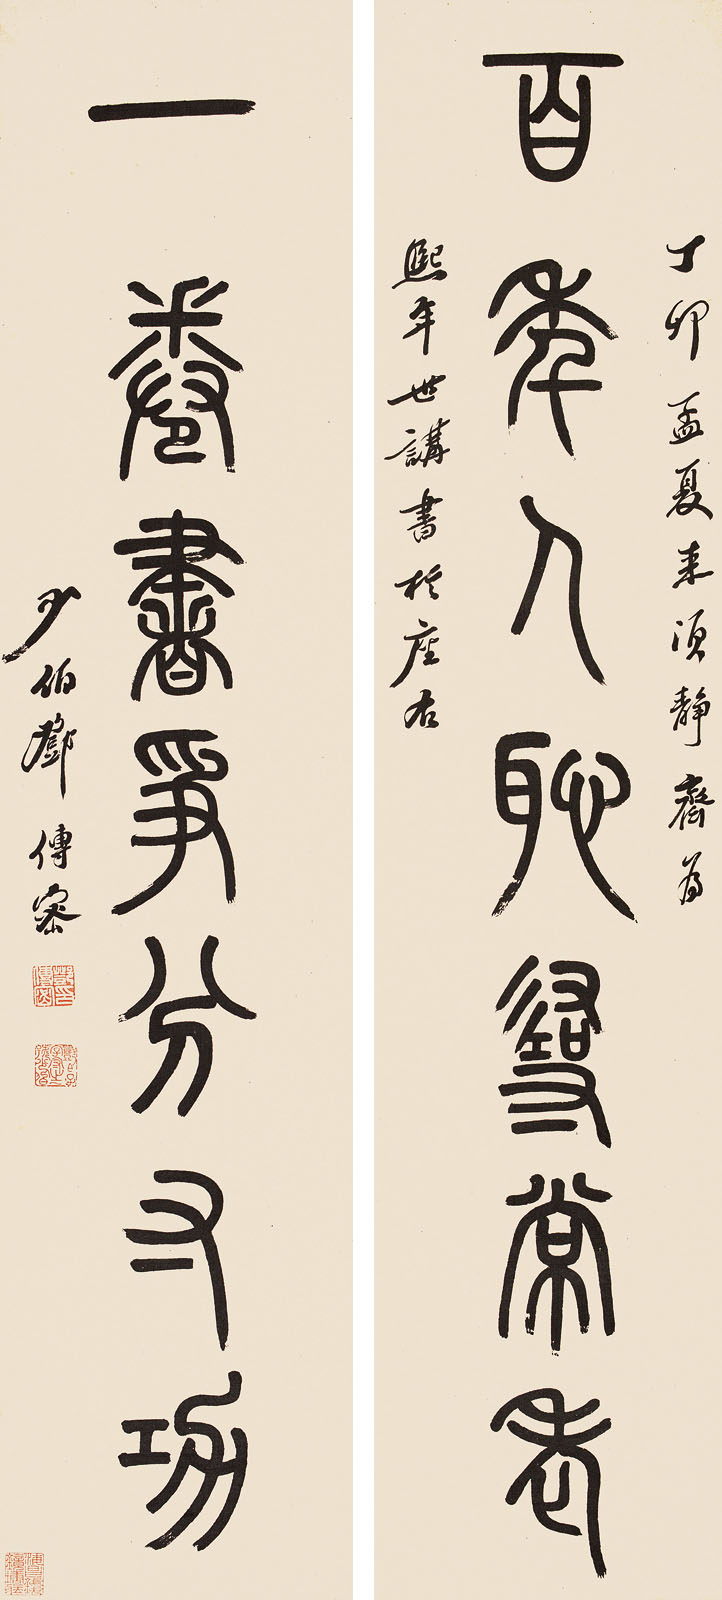 丁卯孟夏來須靜齋為
百年人恥尋常老
熙年世講書於座右
一卷書爭分寸功
少伯鄧傳密